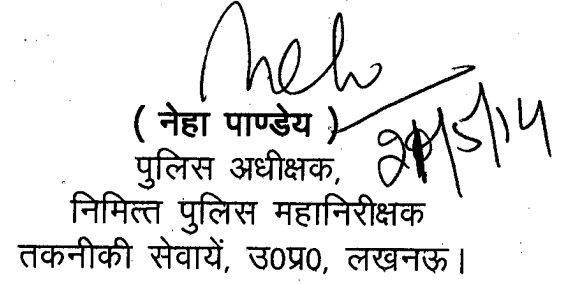 Neh
( नेहा पाण्डेय )
पुलिस अधीक्षक,
निमित्त पुलिस महानिरीक्षक
तकनीकी सेवायें, उ0प्र0, लखनऊ।